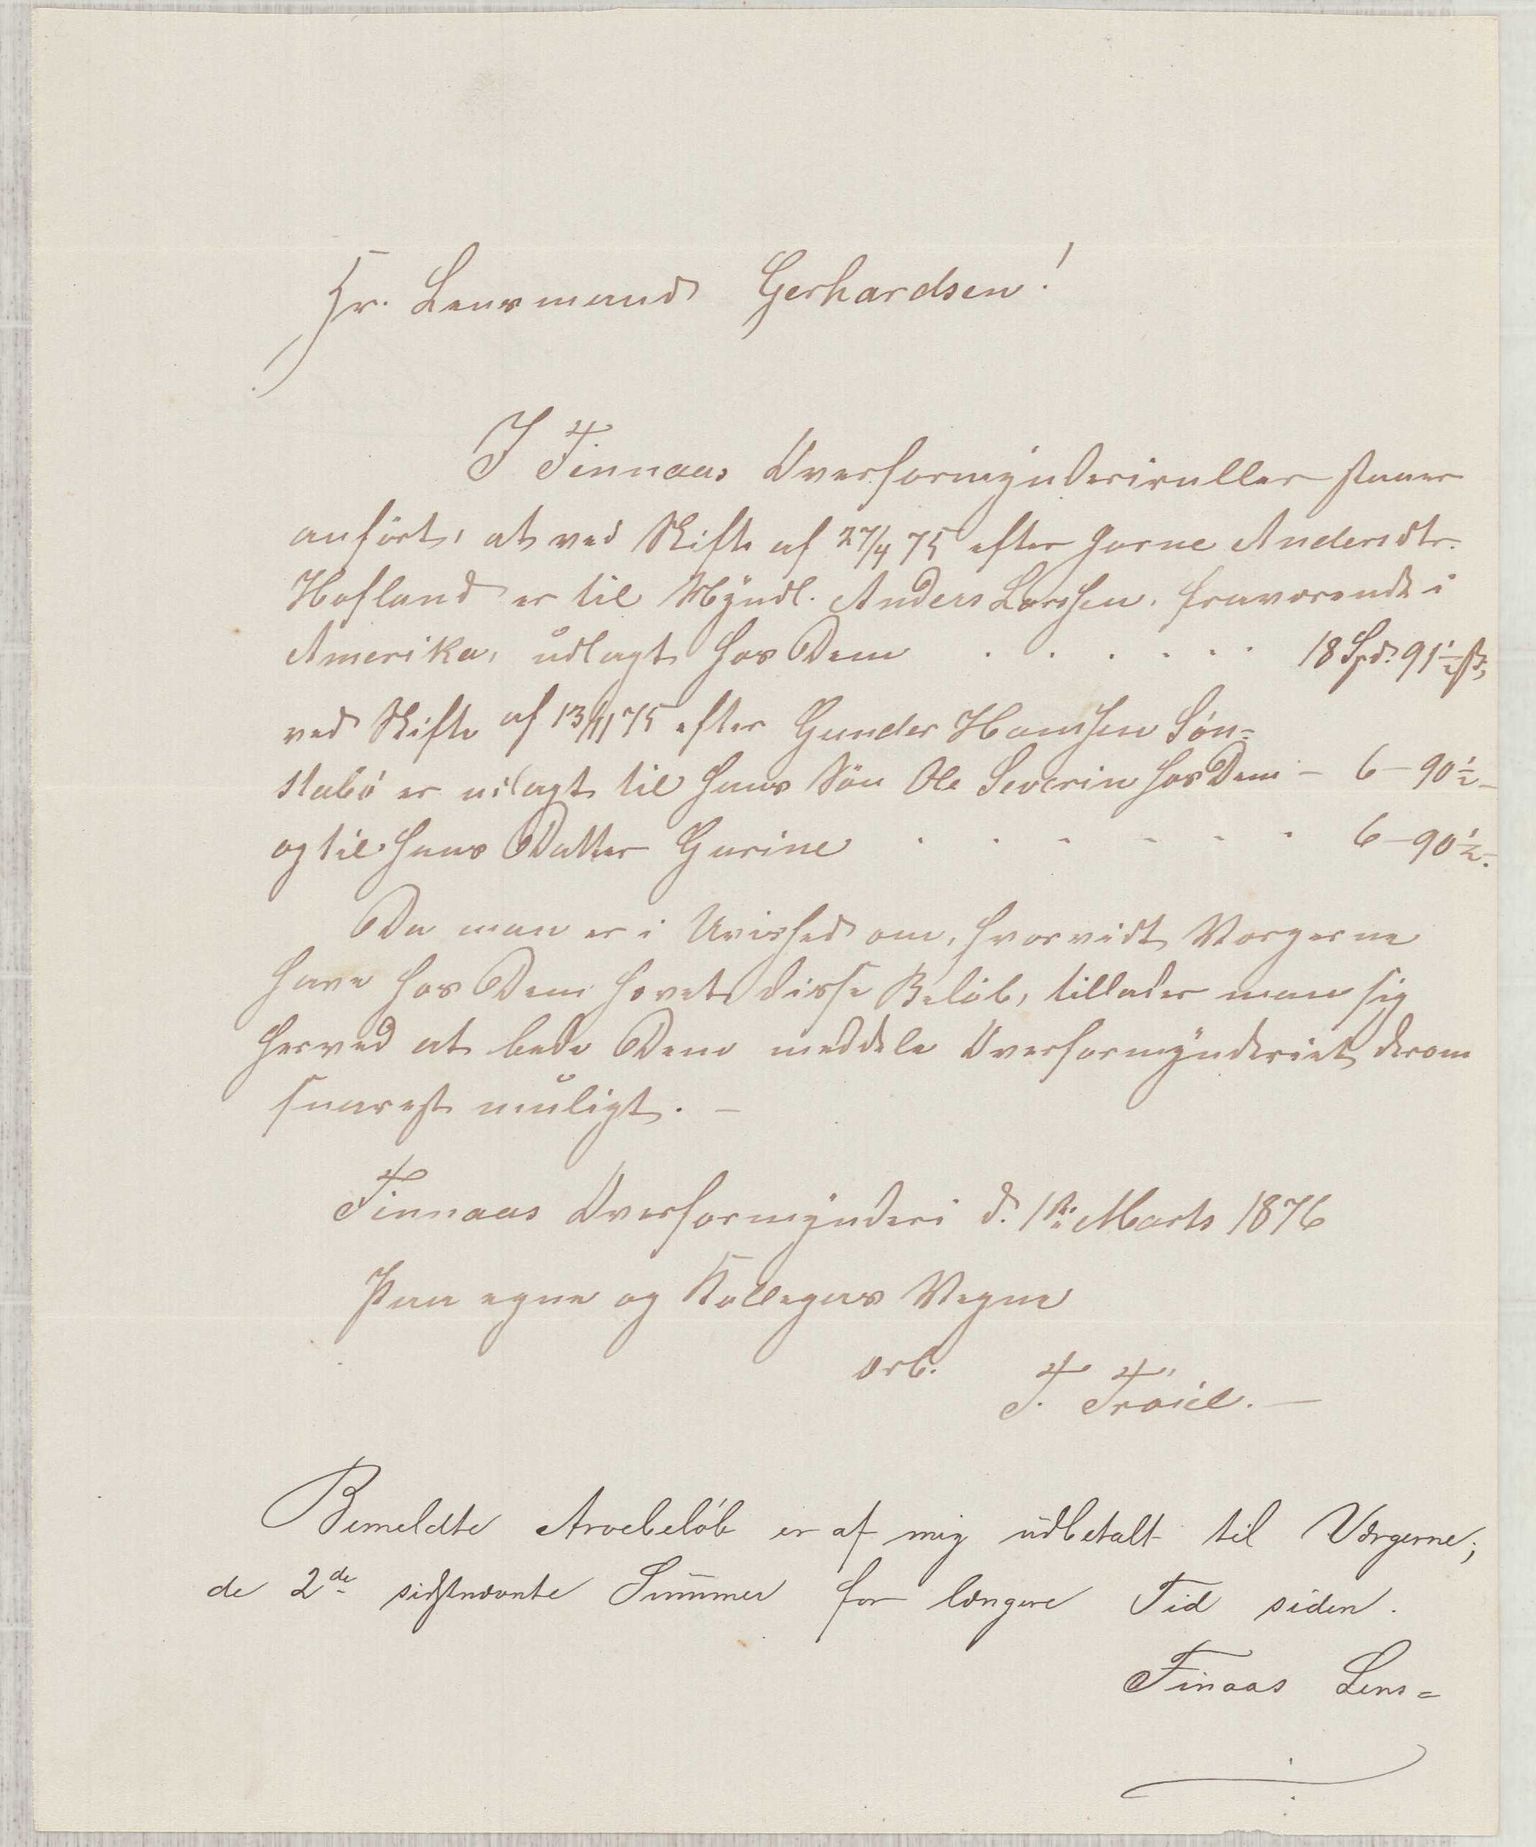 Hr. Lensmand Gerhardsen!
I Finnaas Overformynderiruller staaer
anført, at ved Skifte af 27/4 75 efter Gorne Andersdtr.
Hofland er til Myndl. Anders Larssen, fraværende i
Amerika, udlagt hos Dem . . . . . . 18 Spd. 91½ s,
ved Skifte af 13/11 75 efter Gunder Hansen Søn=
stabø er udlagt til hans Søn Ole Severin hos Dem - 6 - 90½ -
og til hans Datter Gurine . . . . . . 6 - 90½ -.
Da man er i Uvished om, hvorvidt Værgerne
have hos Dem hevet disse Beløb, tillader man sig
herved at bede Dem meddele Overformynderiet derom
snarest muligt. -
Finnaas Overformynderi d. 1ste Marts 1876
Paa egne og Kollegas Vegne
ærb. F. Frøiel. -
Bemeldte Arvebeløb er af mig udbetalt til Værgerne;
de 2de sidstnævnte Summer for længere Tid siden.
Finaas Lens=